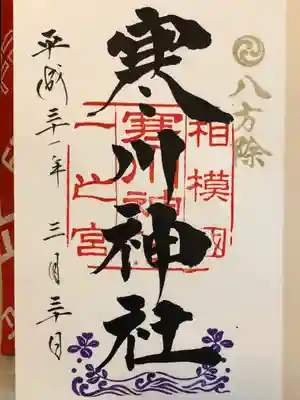 八方除
相模國
寒川神社
一之宮
寒川神社
平成三十一年 三月三十日